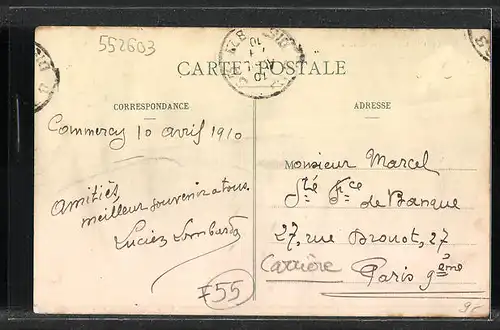 552603
CARTE POSTALE
CORRESPONDANCE
ADRESSE
Commercy 10 avril 1910
Amitiés,
meilleur souvenir a tous.
Lucien Lombard
F55
Monsieur Marcel
Sté Fce
de Banque
27, rue Drouot, 27
Carrière
Paris 9ème